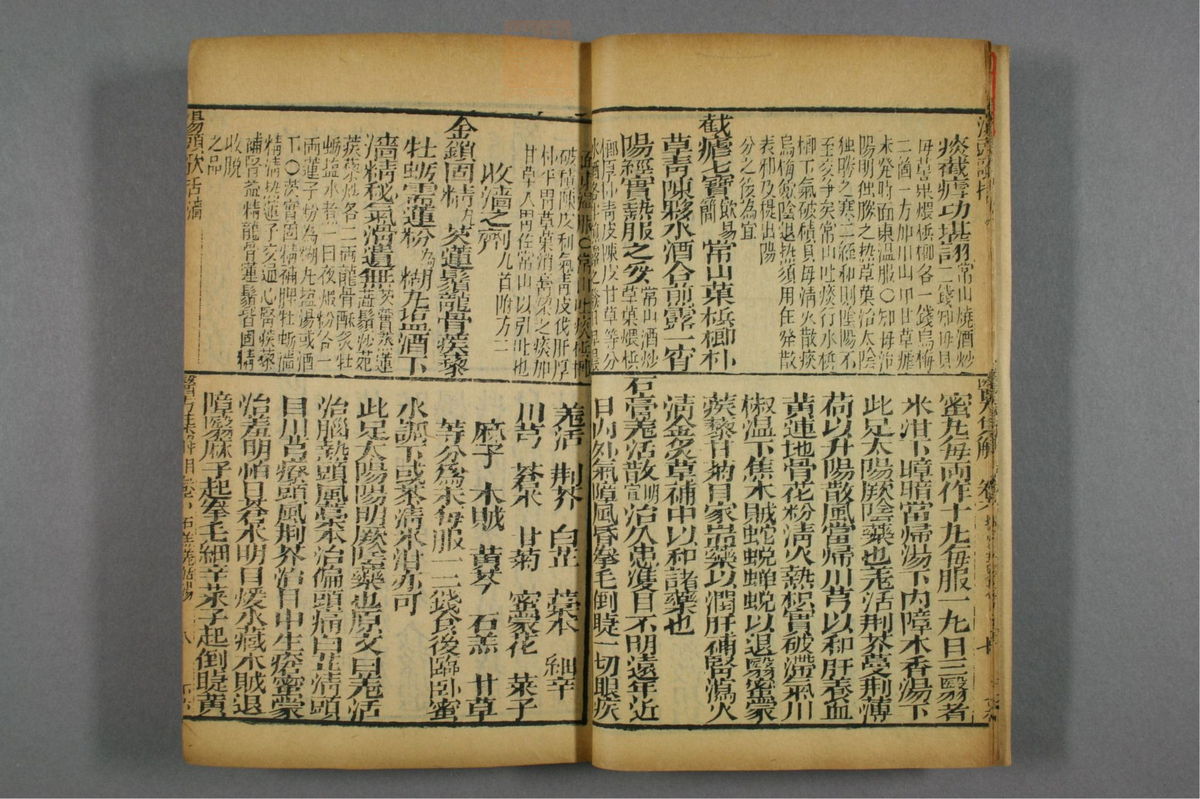 痰截瘧功堪詡常山燒酒炒二錢知母貝
母草果煨檳榔各一錢烏梅
二箇一方加川山甲甘草瘧
未發時面東溫服〇知母治
陽明獨勝之热草菓治太陰
独勝之寒二經和則陰陽不
至交爭矣常山吐痰行水檳
榔下氣破積貝母清火散痰
烏梅歛陰退热須用在發散
表邪及提出陽
分之後為宜
截瘧七寶飲簡易常山菓檳榔朴
草青陳夥水酒合煎露一宵
陽經實熱服之妥常山酒炒草菓煨檳
榔厚朴青皮陳皮甘草等分
破積陳皮利氣青皮伐肝厚
朴平胃草菓消膏梁之痰加
甘草入胃佐常山以引吐也
收濇之劑九首附方二
金鎖固精丸芡蓮鬚龍骨蒺藜
牡蠣需蓮粉為糊丸塩酒下
濇精秘氣滑遺無芡實蒸蓮蕊鬚沙苑
蒺藜炒各二兩龍骨酥炙牡
蠣塩水煮一日夜煅粉各一
兩蓮子粉為糊丸塩湯或酒
下〇芡實固精補脾牡蠣濇
精清热蓮子交通心腎蒺藜
補腎益精龍骨蓮鬚皆固精
收脫
之品
蜜丸每兩作十丸每服一丸日三翳者
米泔下睛暗當歸湯下內障木香湯下
此足太陽厥陰藥也羌活荆芥蔓荆薄
荷以升陽散風當歸川芎以和肝養血
黄連地骨花粉清火熱枳實破滯氣川
椒温下焦木賊蛇蛻蝉蛻以退翳蜜蒙
蒺藜甘菊目家崇藥以潤肝補腎瀉火
清金炙草補中以和諸藥也
石膏羌活散宣明治久患雙目不明遠年近
日內外氣障風昏拳毛倒睫一切眼疾
羌活 荆芥 白芷 藁本 細辛
川芎 蒼朮 甘菊 蜜蒙花 菜子
麻子 木賊 黄芩 石羔 甘草
等分為末每服一二錢食後臨臥蜜
水調下或茶清米泔亦可
此足太陽陽明厥陰藥也原文曰羌活
治腦熱頭風藁本治偏頭痛白芷清頭
目川芎療頭風荆芥治目中生瘡蜜蒙
治羞明怕日蒼朮明目煖水藏木賊退
障翳麻子起拳毛細辛菜子起倒睫黄